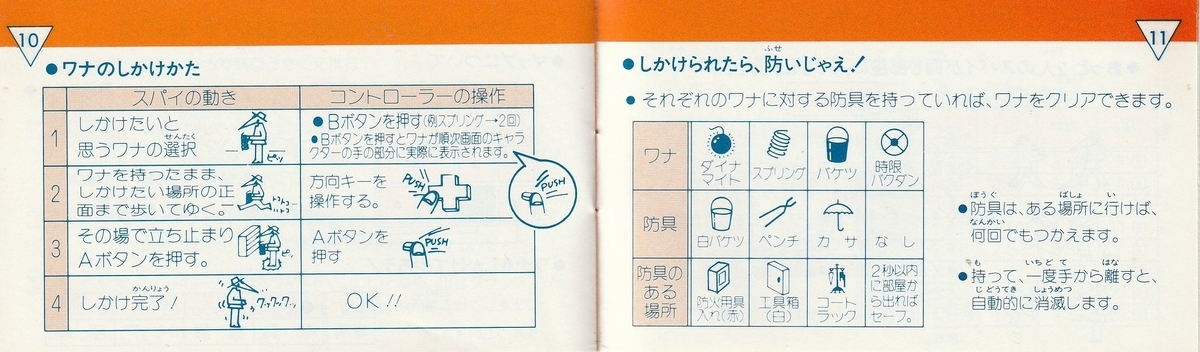 10
●ワナのしかけかた
スパイの動き
コントローラーの操作
1
しかけたいと
思うワナの選択
せんたく
ピッ
●Bボタンを押す(例スプリング→2回)
●Bボタンを押すとワナが順次画面のキャラ
クターの手の部分に実際に表示されます。
2
ワナを持ったまま、
しかけたい場所の正
面まで歩いてゆく。
トコトコ
トコ
方向キーを
操作する。
PUSH
PUSH
3
その場で立ち止まり
Aボタンを押す。
Aボタンを
押す
PUSH
4
かんりょう
しかけ完了!
ワックワクッ
OK!!
11
ふせ
●しかけられたら、防いじゃえ!
●それぞれのワナに対する防具を持っていれば、ワナをクリアできます。
ワナ
ダイナ
マイト
スプリング
バケツ
時限
バクダン
防具
白バケツ
ペンチ
カサ
なし
防具の
ある
場所
防火用具
入れ(赤)
工具箱
(白)
コート
ラック
2秒以内
に部屋か
ら出れば
セーフ。
ぼうぐ ばしょ い
●防具は、ある場所に行けば、
なんかい
何回でもつかえます。
も いちど て はな
●持って、一度手から離すと、
じどうてき しょうめつ
自動的に消滅します。